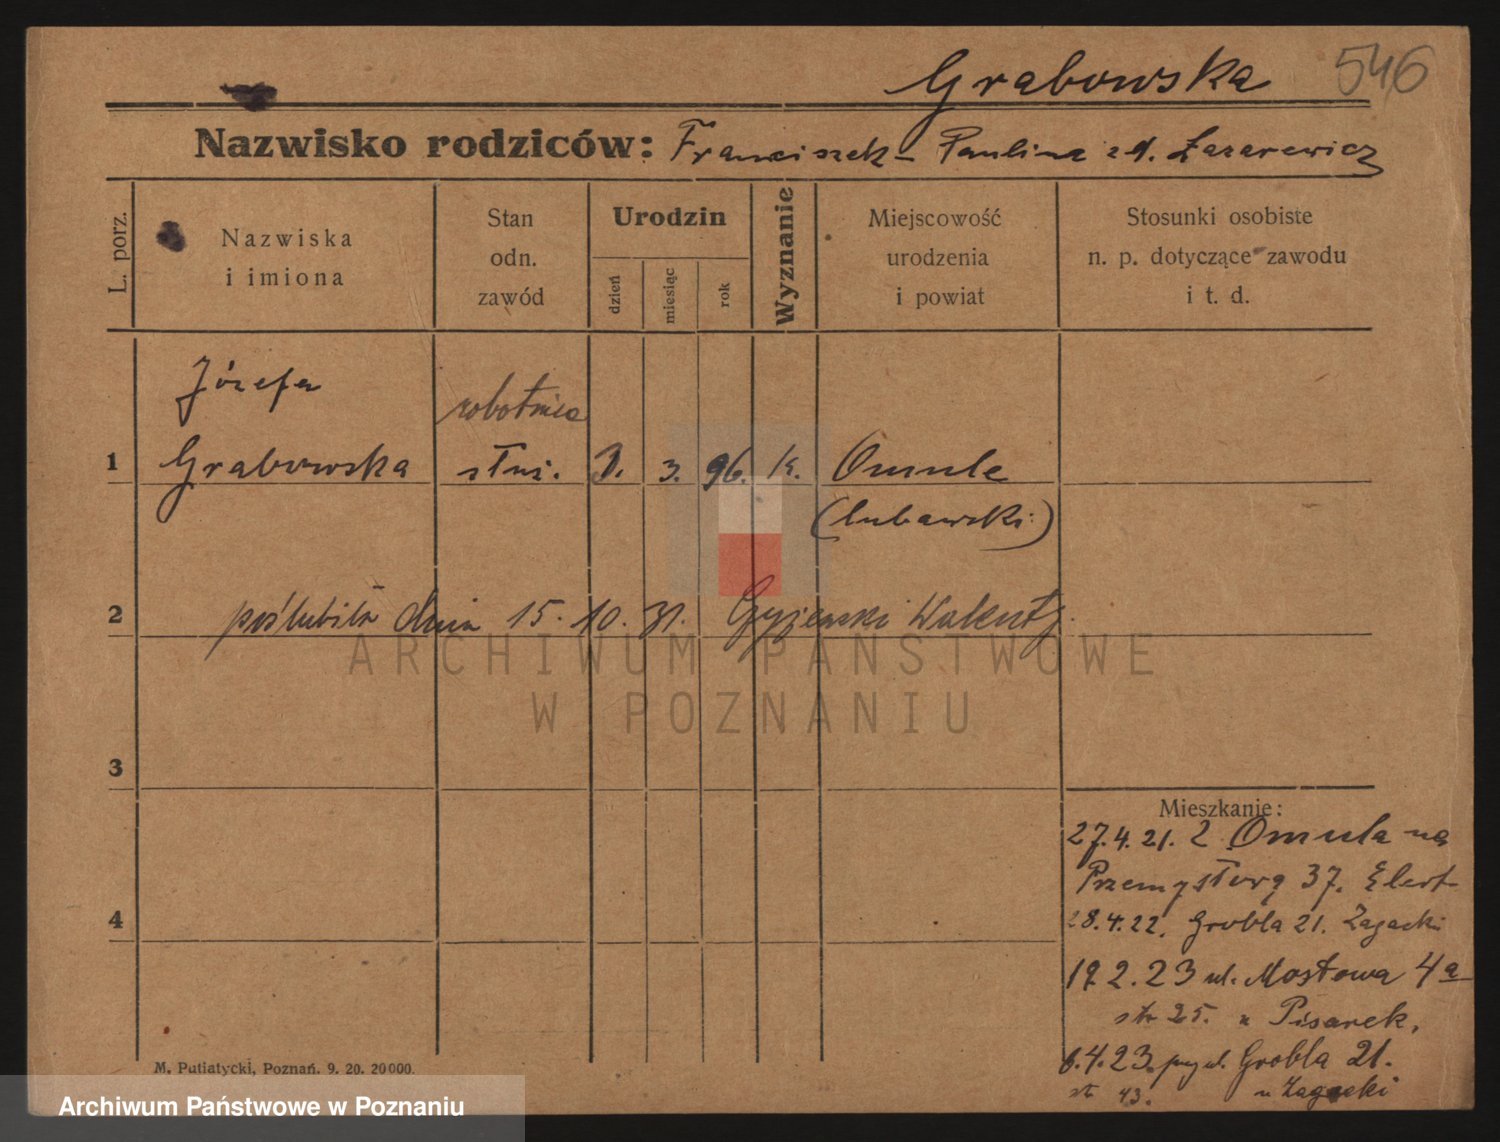 Grabowska 546
Nazwisko rodziców: Franciszek - Paulina z d. Łazarewicz
L. porz.
Nazwiska
i imiona
Stan
odn.
zawód
Urodzin
dzień
miesiąc
rok
Wyznanie
Miejscowość
urodzenia
i powiat
Stosunki osobiste
n. p. dotyczące zawodu
i t. d.
Józefa
robotnica
1 Grabowska służ. 3. 3. 96. k. Omule
(lubawski)
2 poślubiła dnia 15. 10. 31. Walenty
ARCHIWUM PAŃSTWOWE
W POZNANIU
3
Mieszkanie:
27.4.21. z Omula na
Przemysłową 37. Elert
4
28.4.22. Grobla 21. Zagacki
2.23 ul. Mostowa 4a
str 25. u Pisarek.
6.4.23. ul. Grobla 21.
str 43. u Zagacki
M. Putiatycki, Poznań. 9. 20. 20000.
Archiwum Państwowe w Poznaniu